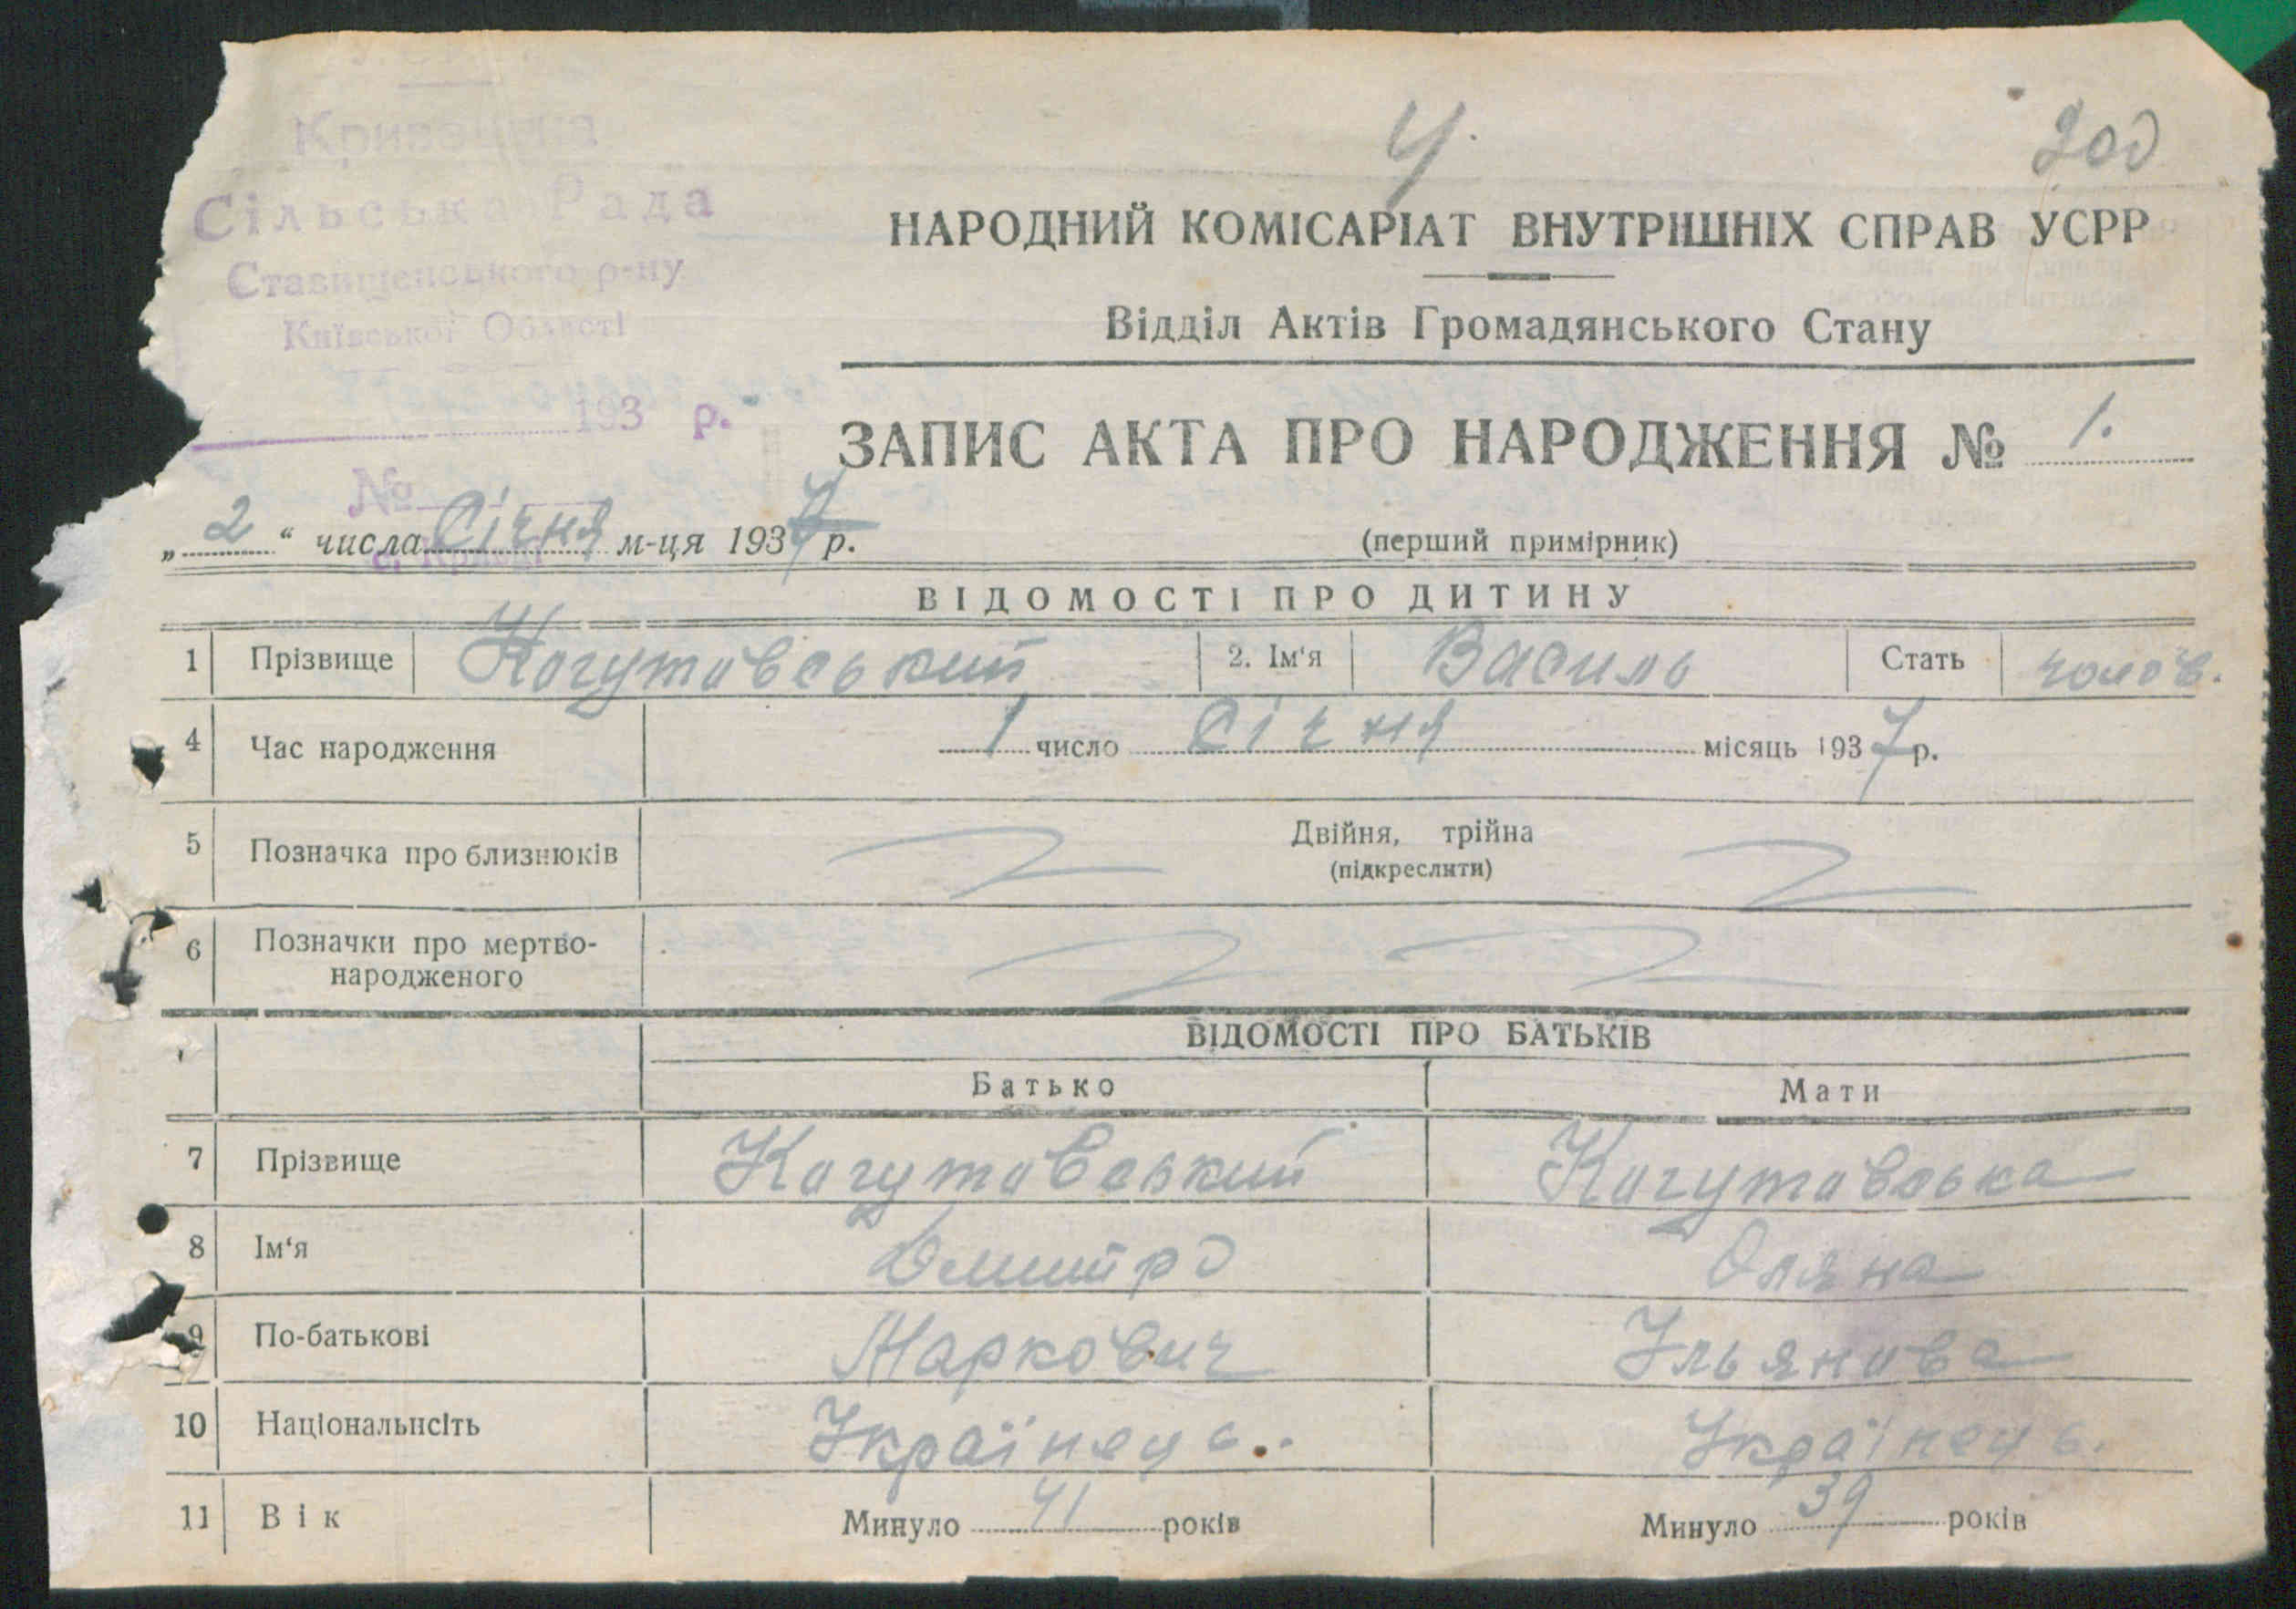 Сільська Рада
Ставищенського р-ну
Київської Області
193 р.
№
Ч.
200
НАРОДНИЙ КОМІСАРІАТ ВНУТРІШНІХ СПРАВ УСРР
Відділ Актів Громадянського Стану
ЗАПИС АКТА ПРО НАРОДЖЕННЯ № 1.
„ 2 “ числа Січня м-ця 1937 р.
(перший примірник)
ВІДОМОСТІ ПРО ДИТИНУ
1 Прізвище Когутовський 2. Ім‘я Василь Стать чолов.
4 Час народження 1 число Січня місяць 1937 р.
5 Позначка про близнюків Двійня, трійна
(підкреслити)
6 Позначки про мертво-
народженого
ВІДОМОСТІ ПРО БАТЬКІВ
Батько Мати
7 Прізвище Когутовський Когутовська
8 Ім‘я Дмитро Оляна
9 По-батькові Маркович Ільянова
10 Національнсіть Українець. Українець.
11 Вік Минуло 41 років Минуло 39 років